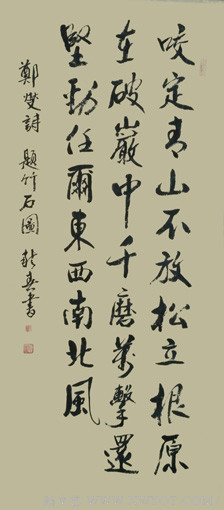 咬定青山不放松立根原
在破巖中千磨萬擊還
堅勁任爾東西南北風
鄭燮詩 題竹石圖 新春書